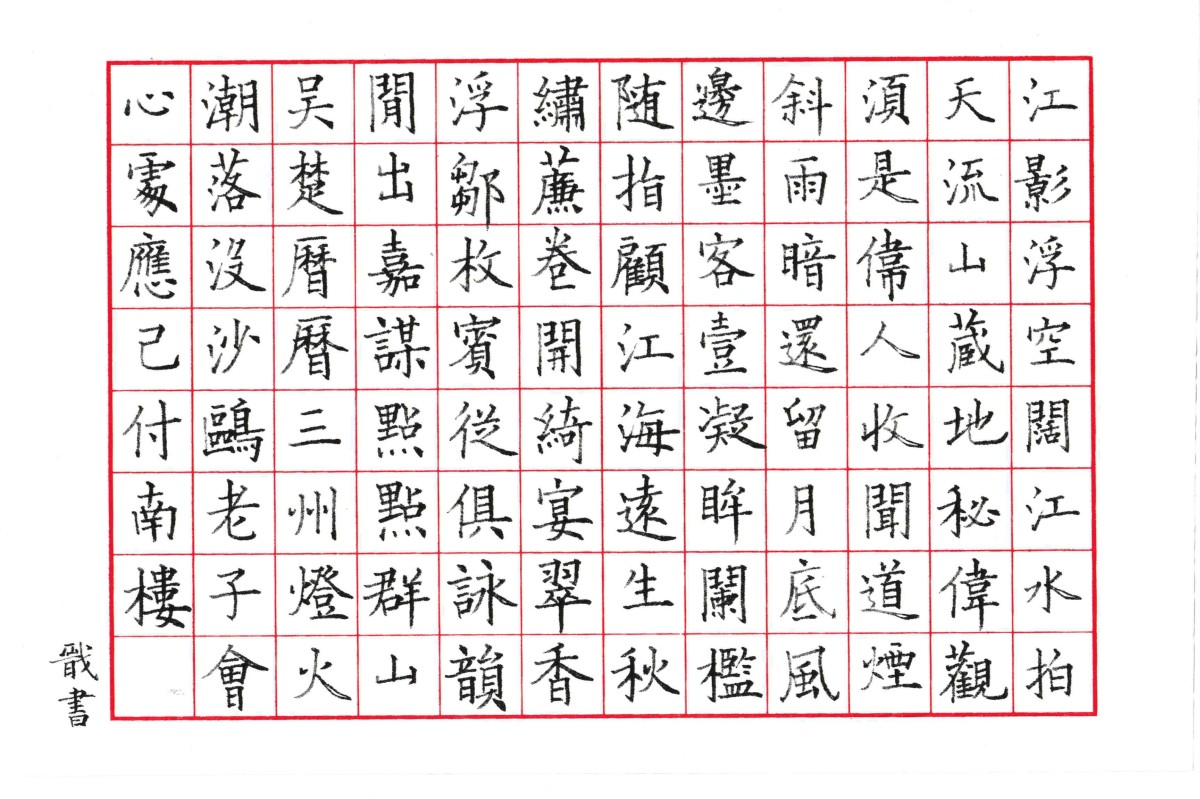 江影浮空闊江水拍
天流山蔵地秘偉觀
湏是偉人收聞道煙
斜雨暗還留月底風
邊墨客壹凝眸闌檻
随指顧江海遠生秋
繡薕卷開綺宴翠香
浮鄒枚賓從俱詠韻
閒出嘉謀點點群山
吴楚暦暦三州燈火
潮落没沙鷗老子會
心處應己付南樓
書